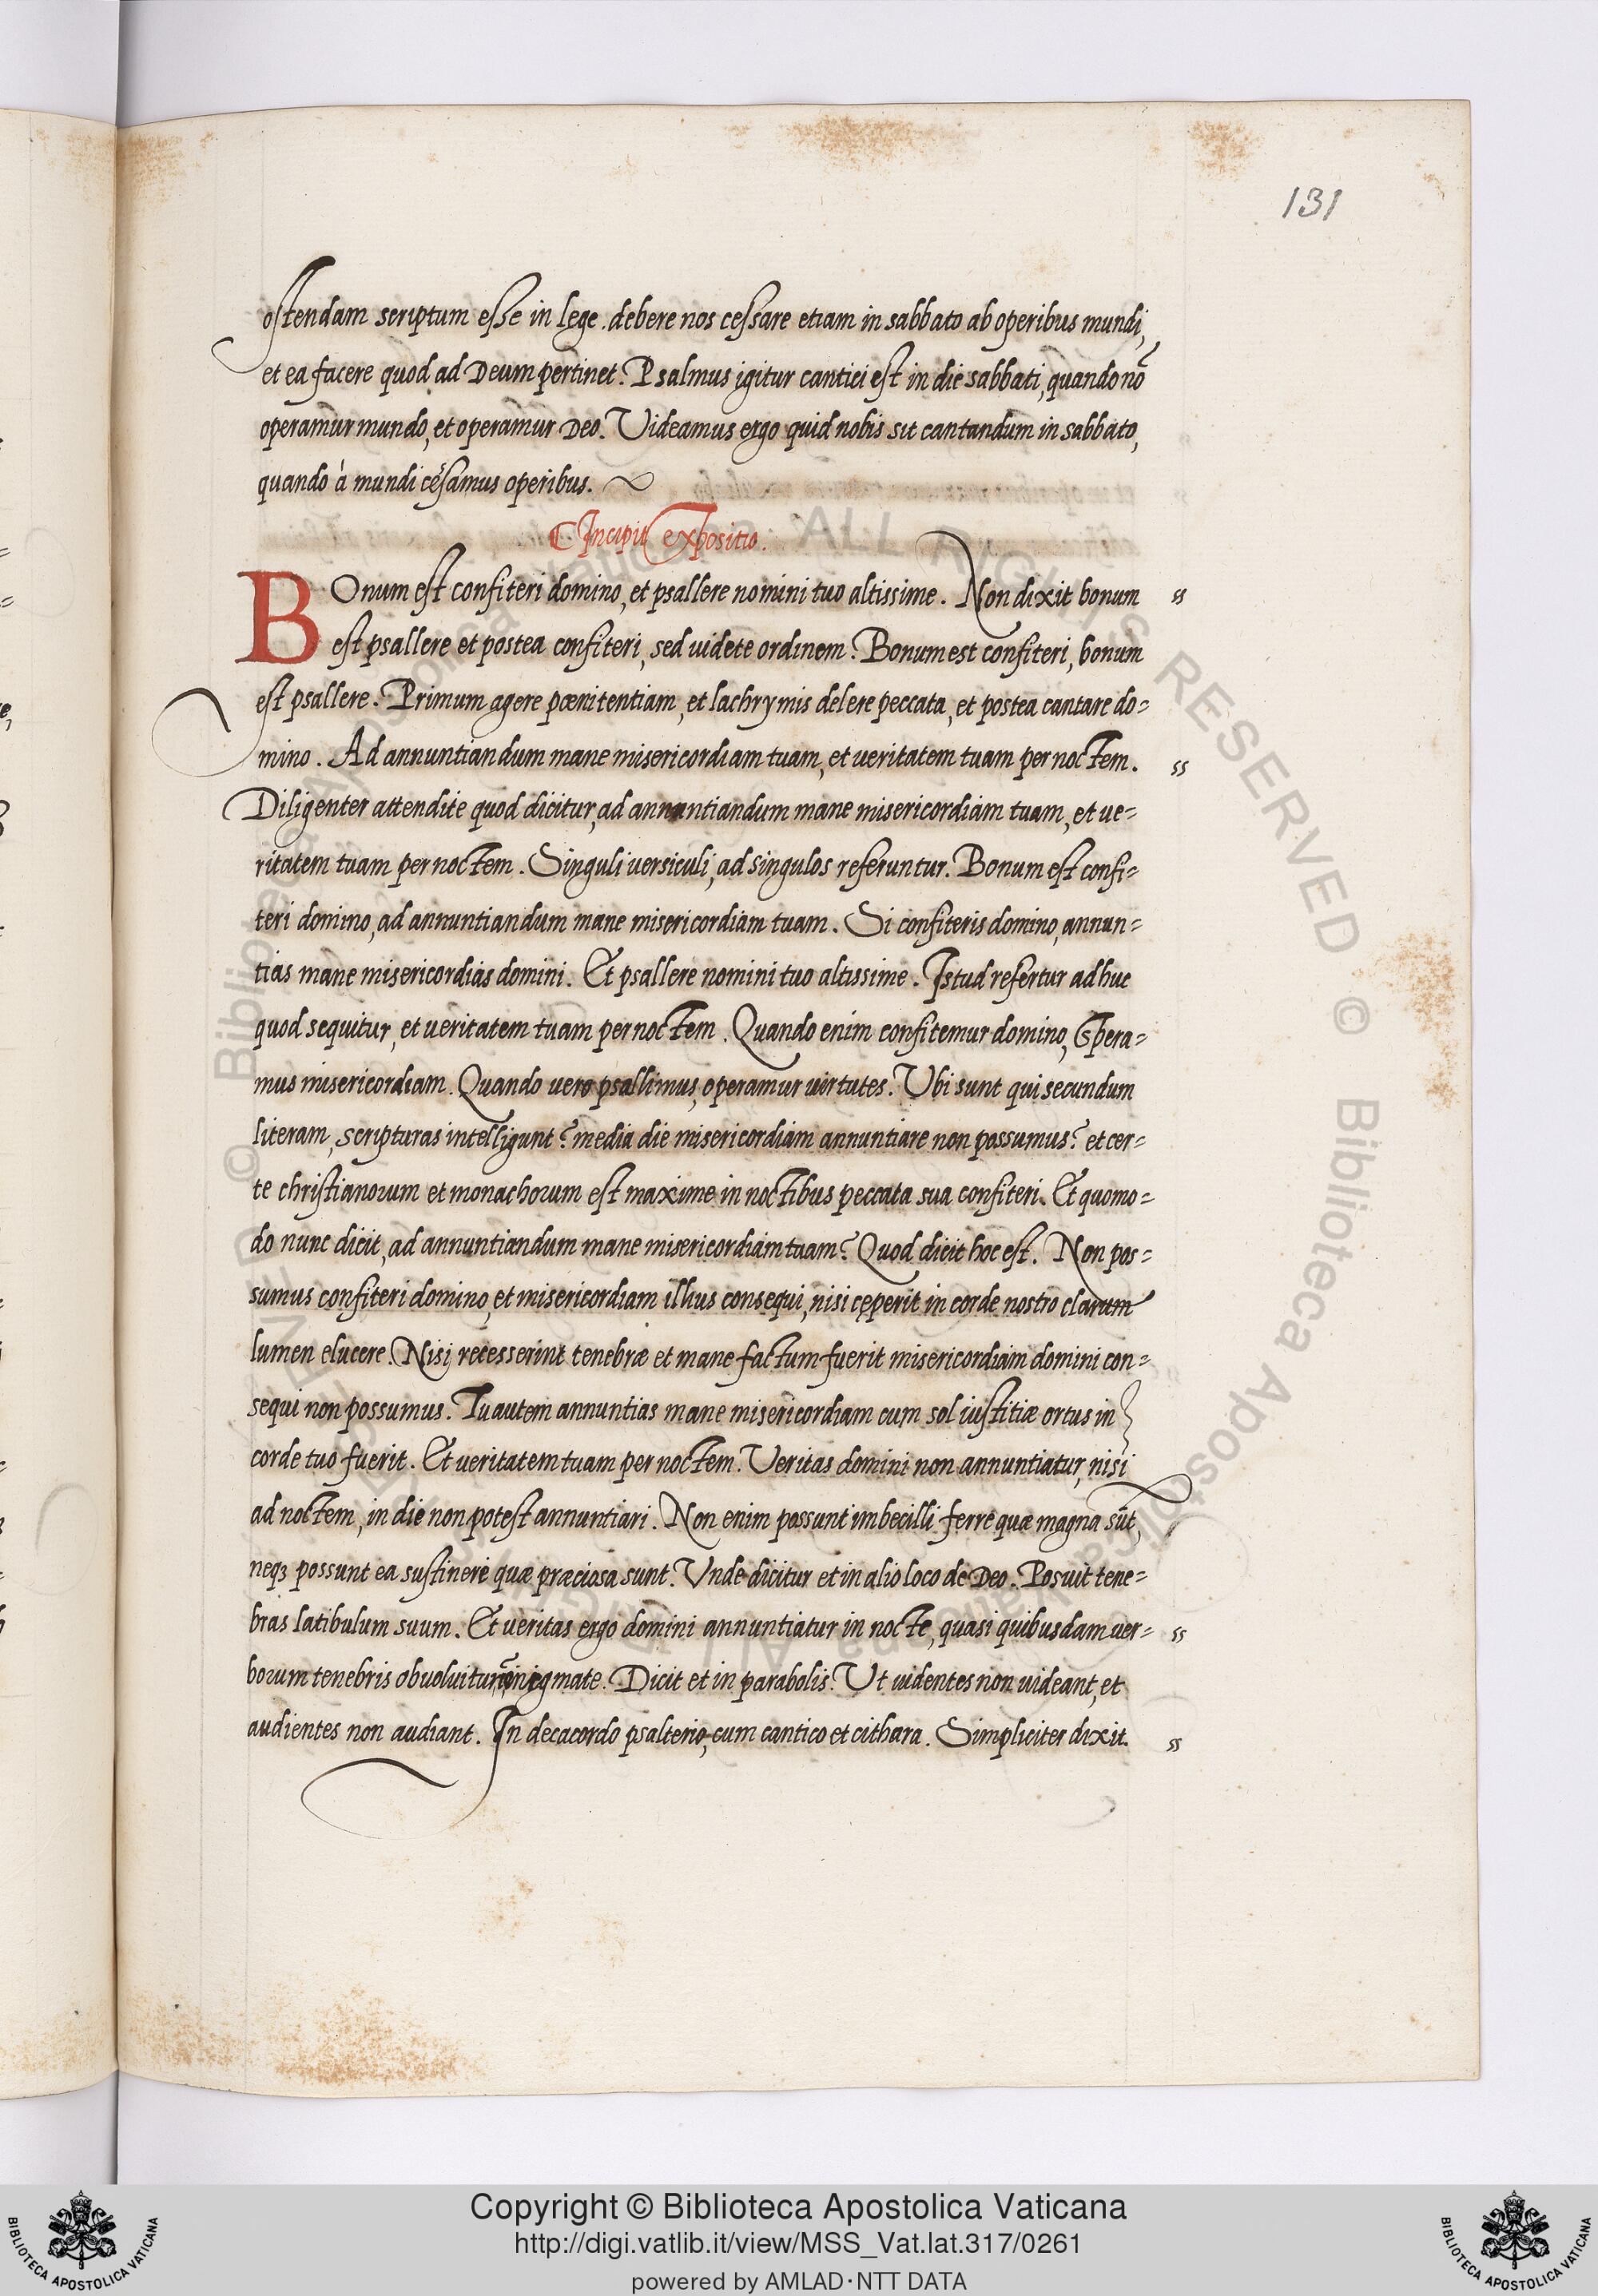 131
ostendam scriptum esse in lege. debere nos cessare etiam in sabbato ab operibus mundi,
et ea facere quod ad Deum pertinet. Psalmus igitur cantici est in die sabbati, quando nō
operamur mundo, et operamur Deo. Videamus ergo quid nobis sit cantandum in sabbato,
quando à mundi cessamus operibus.
Incipit expositio.
BOnum est confiteri domino, et psallere nomini tuo altissime. Non dixit bonum
est psallere et postea confiteri, sed uidete ordinem. Bonum est confiteri, bonum
est psallere. Primum agere pœnitentiam, et lachrymis delere peccata, et postea cantare do=
mino. Ad annuntiandum mane misericordiam tuam, et ueritatem tuam per noctem.
Diligenter attendite quod dicitur, ad annuntiandum mane misericordiam tuam, et ue=
ritatem tuam per noctem. Singuli uersiculi, ad singulos referuntur. Bonum est confi=
teri domino, ad annuntiandum mane misericordiam tuam. Si confiteris domino, annun=
tias mane misericordias domini. Et psallere nomini tuo altissime. Istud refertur ad huc
quod sequitur, et ueritatem tuam per noctem. Quando enim confitemur domino, spera=
mus misericordiam. Quando uero psallimus, operamur uirtutes. Vbi sunt qui secundum
literam, scripturas intelligunt? media die misericordiam annuntiare non possumus? et cer=
te christianorum et monachorum est maxime in noctibus peccata sua confiteri. Et quomo=
do nunc dicit, ad annuntiandum mane misericordiam tuam? Quod dicit hoc est. Non pos=
sumus confiteri domino, et misericordiam illius consequi, nisi cęperit in corde nostro clarum
lumen elucere. Nisi recesserint tenebræ et mane factum fuerit misericordiam domini con=
sequi non possumus. Tu autem annuntias mane misericordiam cum sol iustitiæ ortus in
corde tuo fuerit. Et ueritatem tuam per noctem. Veritas domini non annuntiatur, nisi
ad noctem, in die non potest annuntiari. Non enim possunt imbecilli ferre quæ magna sūt,
neqз possunt ea sustinere quæ præciosa sunt. Vnde dicitur et in alio loco de Deo. Posuit tene=
bras latibulum suum. Et ueritas ergo domini annuntiatur in nocte, quasi quibusdam uer=
borum tenebris obuoluitur, ænigmate. Dicit et in parabolis. Vt uidentes non uideant, et
audientes non audiant. In decacordo psalterio, cum cantico et cithara. Simpliciter dixit.
© Biblioteca Apostolica Vaticana ALL RIGHTS RESERVED © Biblioteca Apostolica
Copyright © Biblioteca Apostolica Vaticana
http://digi.vatlib.it/view/MSS_Vat.lat.317/0261
powered by AMLAD·NTT DATA
BIBLIOTECA APOSTOLICA VATICANA
BIBLIOTECA APOSTOLICA VATICANA